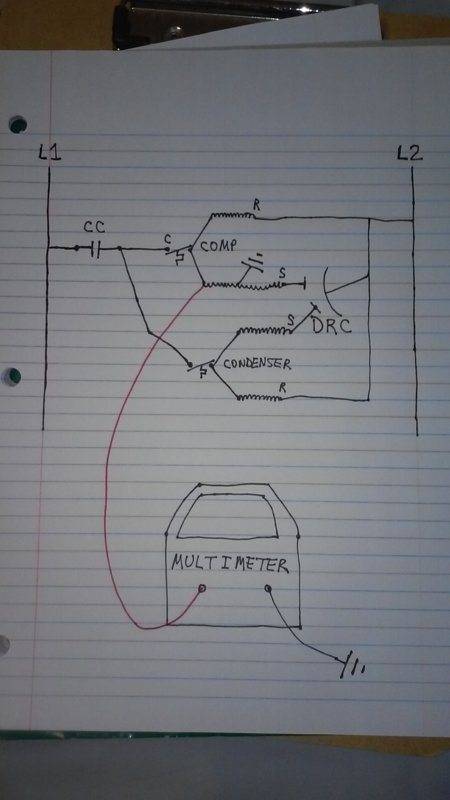 L1 L2
R
CC
C COMP
S
S DRC
CONDENSER
R
MULTIMETER